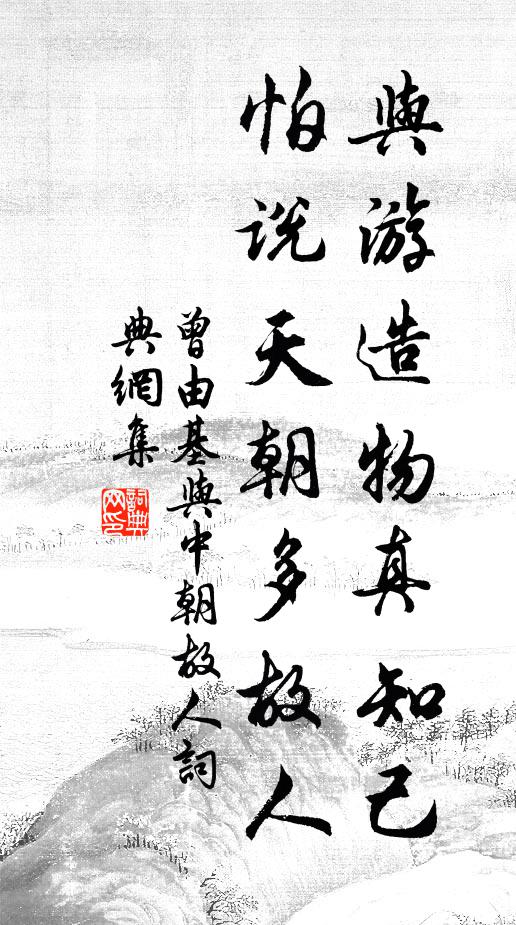 與游造物真知己
怕說天朝多故人
曾由基與中朝故人詞
典網集
詞典網印